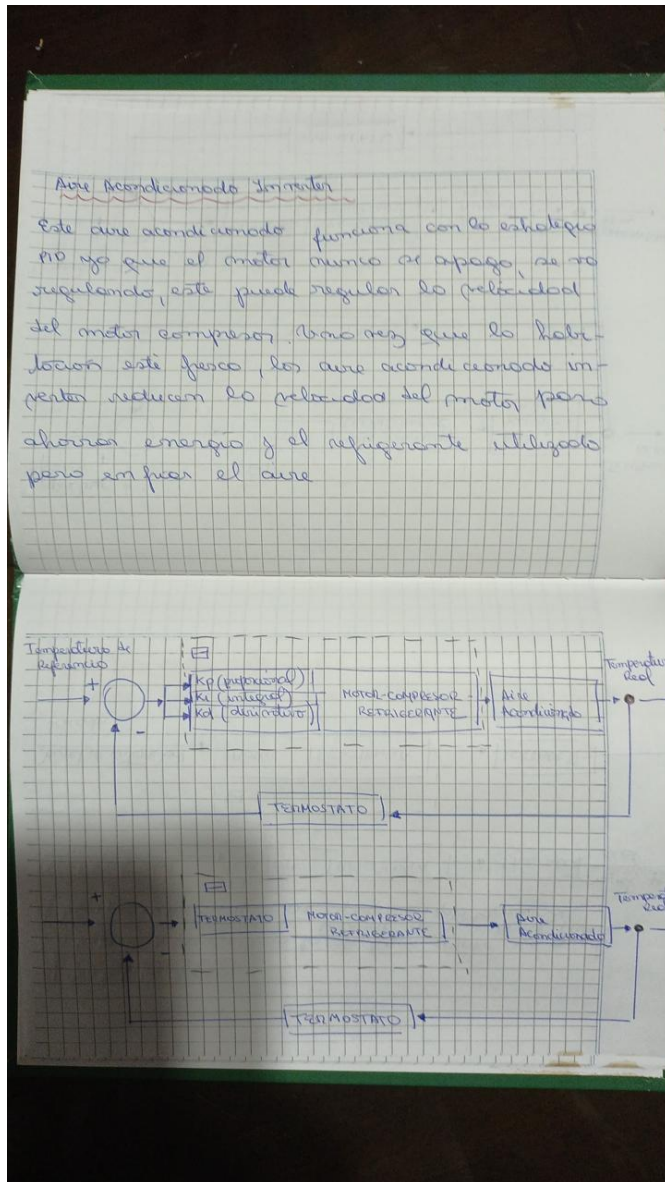 Aire Acondicionado Inverter
Este aire acondicionado funciona con la estrategia
PID ya que el motor nunca se apaga, se va
regulando, este puede regular la velocidad
del motor compresor. Una vez que la habi-
tación esté fresca, los aire acondicionado in-
verter reducen la velocidad del motor para
ahorrar energía y el refrigerante utilizado
para enfriar el aire
Temperatura de
Referencia
+
-
Kp (proporcional)
Ki (integral)
Kd (derivativo)
MOTOR-COMPRESOR-
REFRIGERANTE
Aire
Acondicionado
Temperatura
Real
TERMOSTATO
+
-
TERMOSTATO
MOTOR-COMPRESOR
REFRIGERANTE
Aire
Acondicionado
Real
TERMOSTATO